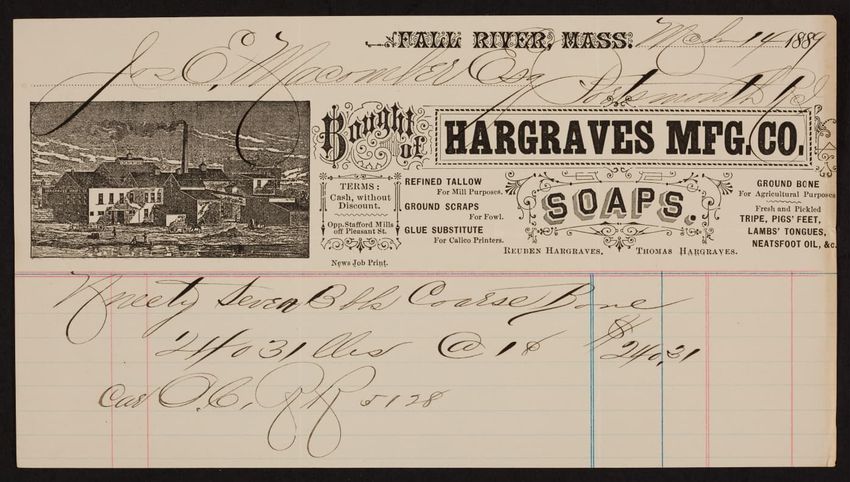 FALL RIVER, MASS. Mch 14 1889
Jos E. Macomber Esq
Portsmouth RI
Bought of HARGRAVES MFG. CO.
TERMS:
Cash, without
Discount.
Opp. Stafford Mills
off Pleasant St.
News Job Print.
REFINED TALLOW
For Mill Purposes.
GROUND SCRAPS
For Fowl.
GLUE SUBSTITUTE
For Calico Printers.
SOAPS.
REUBEN HARGRAVES. THOMAS HARGRAVES.
GROUND BONE
For Agricultural Purposes
Fresh and Pickled
TRIPE, PIGS' FEET,
LAMBS' TONGUES,
NEATSFOOT OIL, &c.
Ninety Seven Bbls Coarse Bone
24031 lbs @ 1¢ $240,31
Car O.C. RR 5128